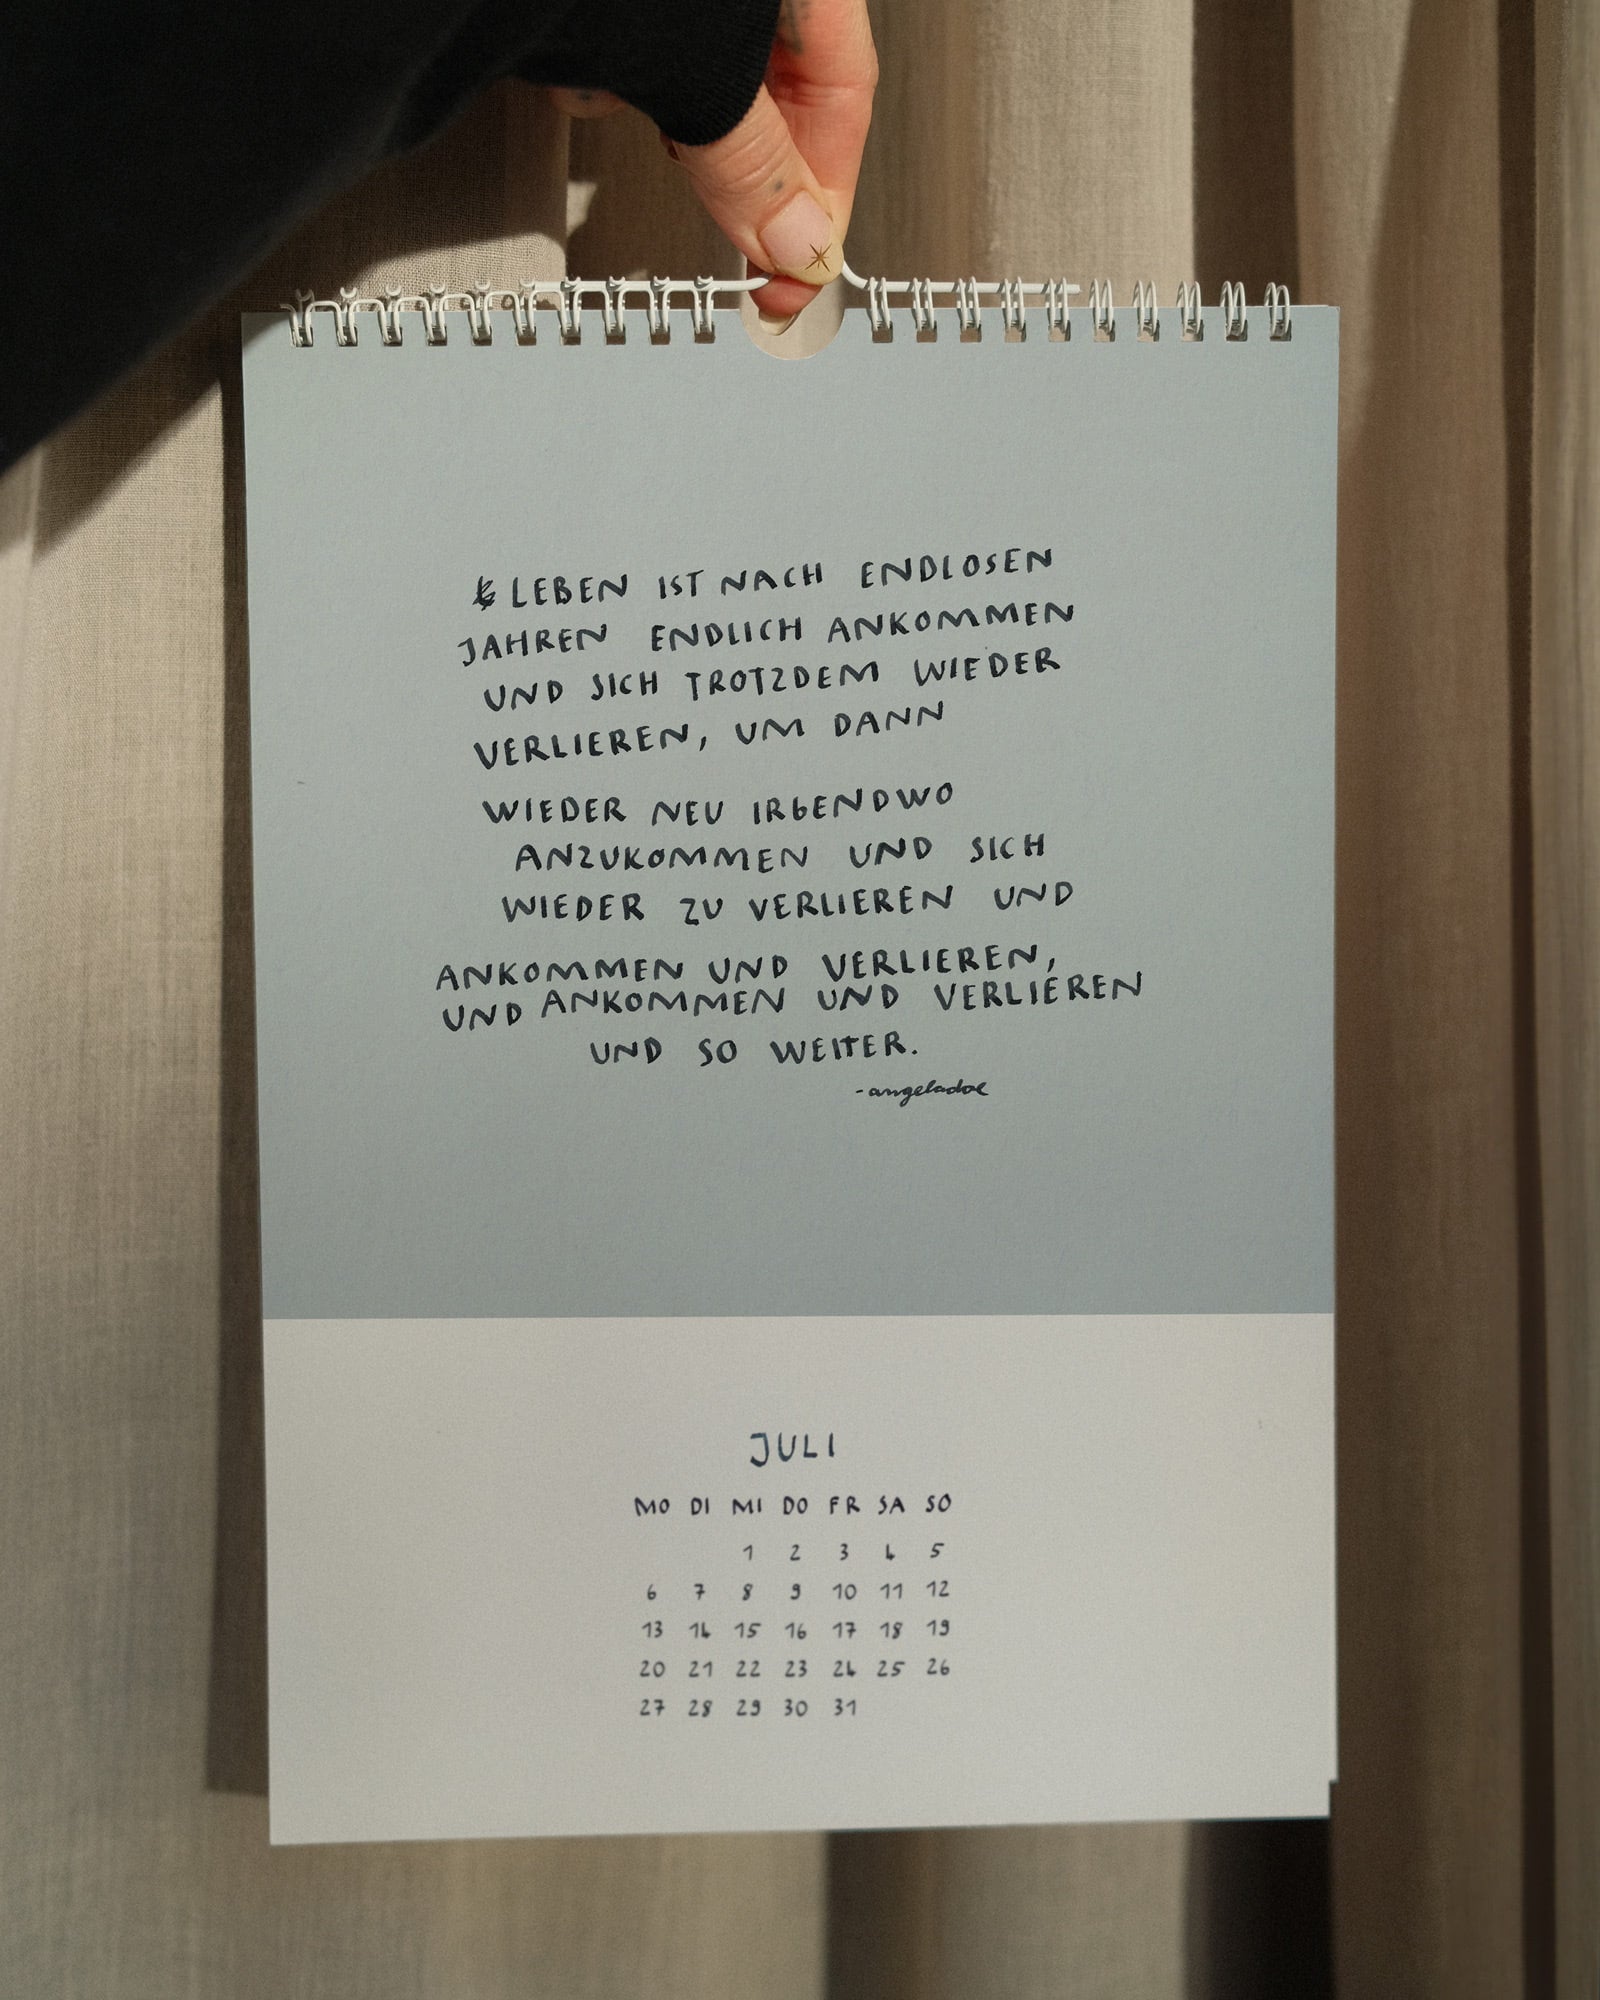 LEBEN IST NACH ENDLOSEN
JAHREN ENDLICH ANKOMMEN
UND SICH TROTZDEM WIEDER
VERLIEREN, UM DANN
WIEDER NEU IRGENDWO
ANZUKOMMEN UND SICH
WIEDER ZU VERLIEREN UND
ANKOMMEN UND VERLIEREN,
UND ANKOMMEN UND VERLIEREN
UND SO WEITER.
- angeladoe
JULI
MO DI MI DO FR SA SO
1 2 3 4 5
6 7 8 9 10 11 12
13 14 15 16 17 18 19
20 21 22 23 24 25 26
27 28 29 30 31